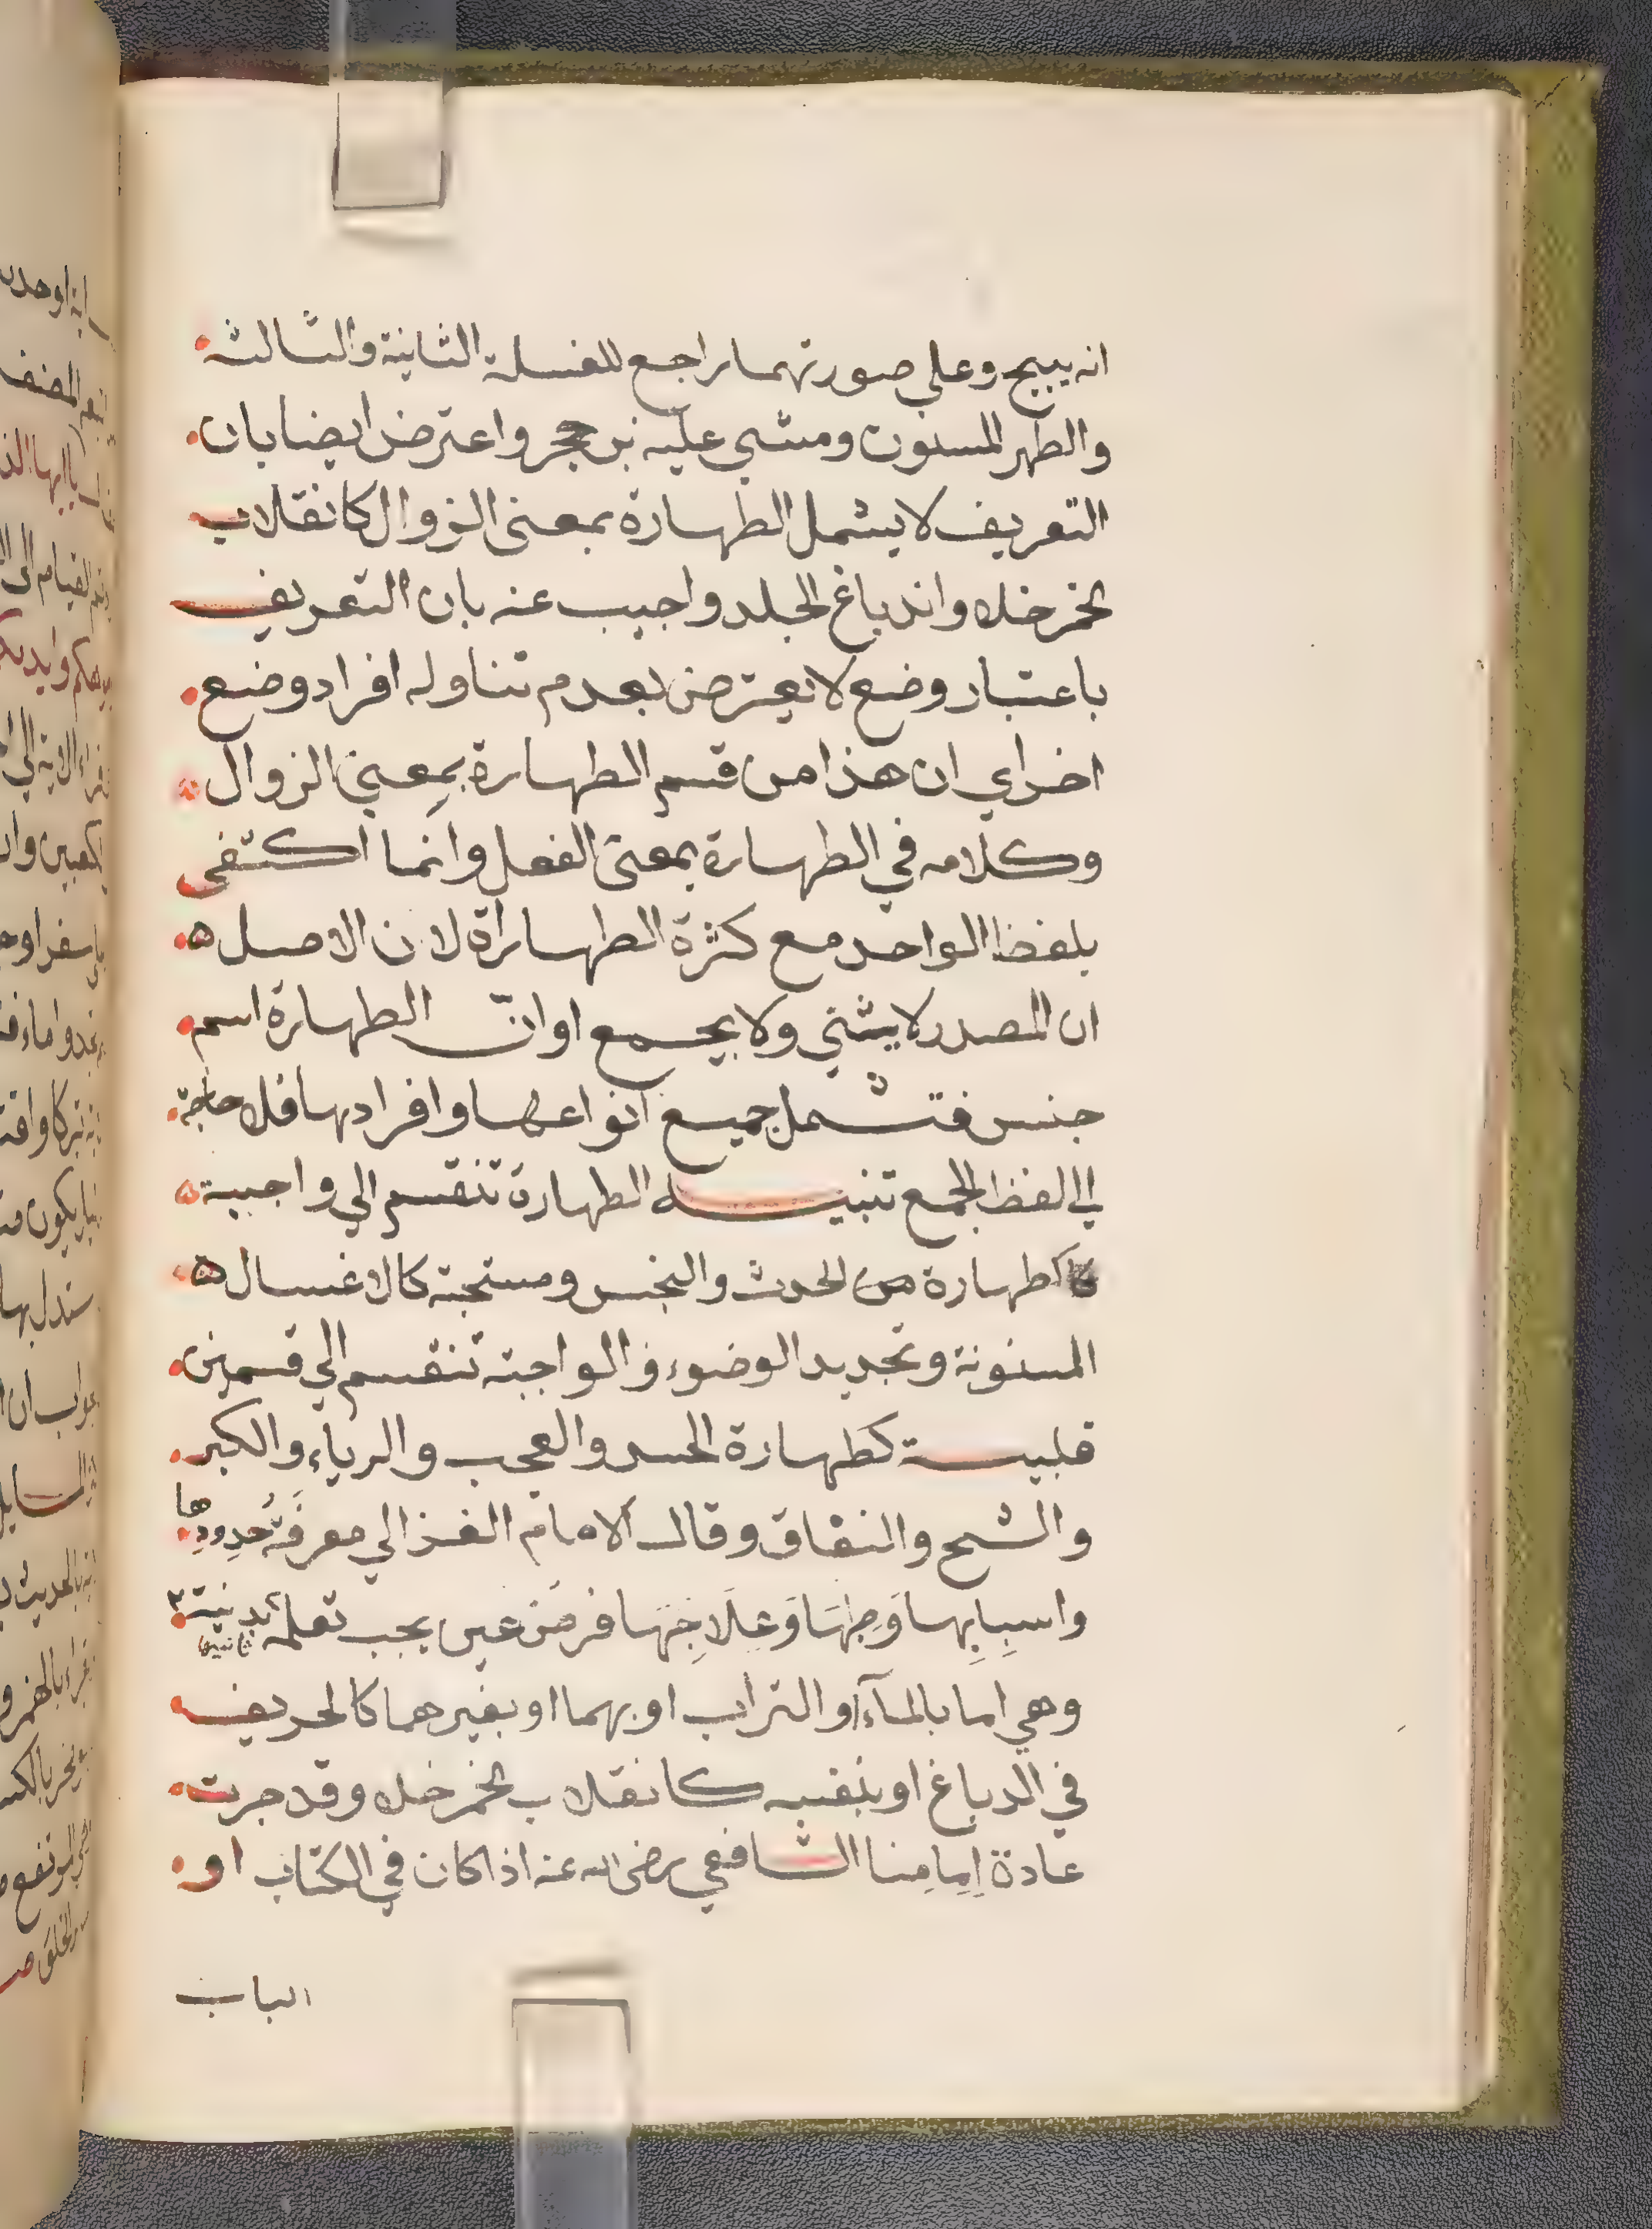 انه يبيح وعلي صورتهما راجع للغسلة الثانية والثالثه
والطهر المسنون ومشي عليه بن حجر واعترض ايضا بان
التعريف لا يشمل الطهارة بمعنى الزوال كانقلاب
الخمر خلا واندباغ الجلد واجيب عنه بان التعريف
باعتبار وضع لا يعترض بعدم تناوله افراد وضع
اخراي ان هذا من قسم الطهارة بمعني الزوال
وكلامه في الطهارة بمعنى الفعل وانما اكتفى
بلفظ الواحد مع كثرة الطهاراة لان الاصل ه
ان المصدر لا يثني ولا يجمع او انّ الطهارة اسم
جنس فتشمل جميع انواعها وافرادها فلا حاجة
الي لفظ الجمع تنبيه الطهارة تنقسم الي واجبة ه
كاطهارة من الحدث والنجس ومستحبة كالاغسال ه
المسنونة وتجديد الوضوء والواجبة تنقسم الي قسمين
قلبية كطهارة الحسد والعجب والرياء والكبر
والشح والنفاق وقال الامام الغزالي معرفة حدودها
واسبابها وطبها وعلاجها فرض عين يجب تعلمه بدنية
وهي اما بالمآء او التراب او بهما او بغيرهما كالحريف
في الدباغ او بنفسه كانقلاب الخمر خلا وقد جرت
عادة إمامنا الشافعي رضي الله عنه اذا كان في الكتاب او
الباب